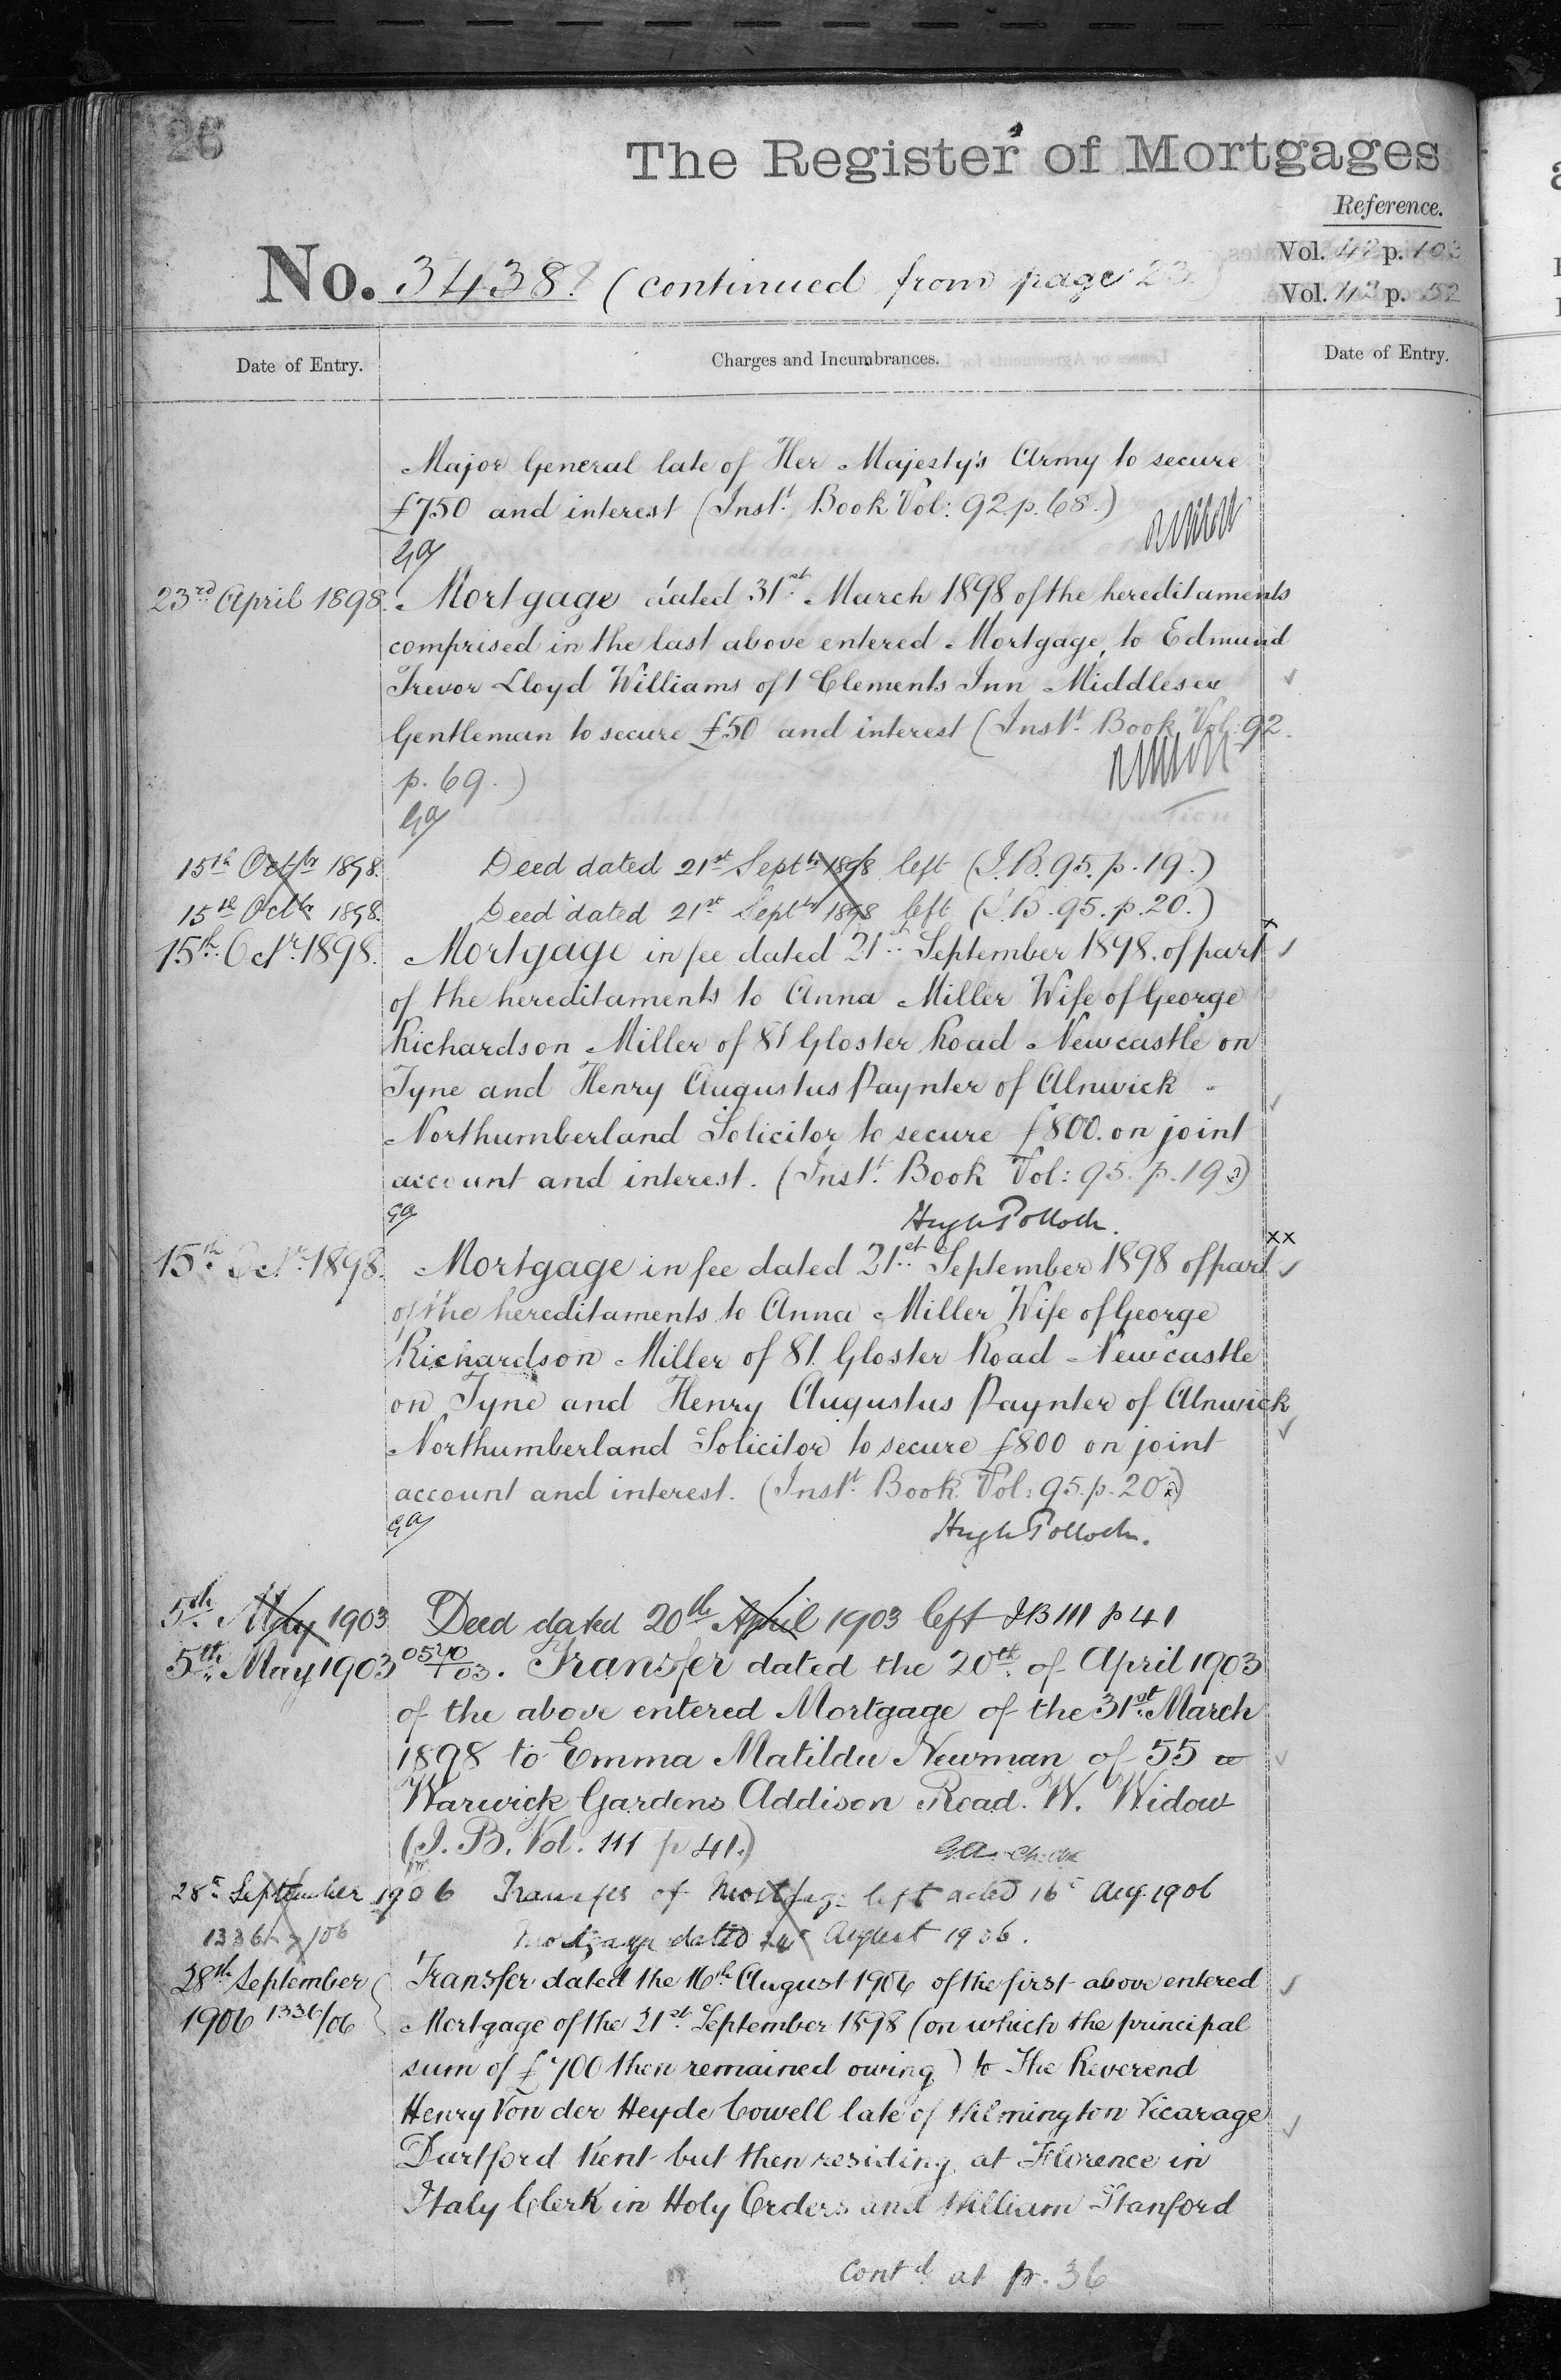 26
The Register of Mortgages
Reference.
No. 3438. (continued from page 23)
Vol. 42 p. 103
Vol. 43 p. 52
Date of Entry.
Charges and Incumbrances.
Date of Entry.
Major General late of Her Majesty's Army to secure
£750 and interest (Inst.t Book Vol: 92 p. 68.)
GA
23rd April 1898. Mortgage dated 31st March 1898 of the hereditaments
comprised in the last above entered Mortgage, to Edmund
Trevor Lloyd Williams of 1 Clements Inn Middlesex
Gentleman to secure £50 and interest (Inst.t Book Vol: 92.
p. 69.)
GA
15th Octbr 1898. Deed dated 21st Septbr 1898 left (I.B. 95. p. 19.)
15th Octbr 1898. Deed dated 21st Septbr 1898 left (I.B. 95. p. 20.)
15th Octr 1898. Mortgage in fee dated 21st September 1898. of part x
of the hereditaments to Anna Miller Wife of George
Richardson Miller of 81 Gloster Road Newcastle on
Tyne and Henry Augustus Paynter of Alnwick -
Northumberland Solicitor to secure £800. on joint
account and interest. (Inst.t Book Vol: 95. p. 19.)
GA
Hugh Pollock.
15th Octr 1898. Mortgage in fee dated 21st September 1898 of part xx
of the hereditaments to Anna Miller Wife of George
Richardson Miller of 81. Gloster Road Newcastle
on Tyne and Henry Augustus Paynter of Alnwick
Northumberland Solicitor to secure £800 on joint
account and interest. (Inst.t Book Vol: 95. p. 20.)
GA
Hugh Pollock.
5th May 1903 Deed dated 20th April 1903 left IB 111 p 41
5th May 1903 0540/03. Transfer dated the 20th of April 1903
of the above entered Mortgage of the 31st March
1898 to Emma Matilda Newman of 55 a
Warwick Gardens Addison Road. W. Widow
(I. B. Vol. 111 p 41.)
28th September 1906 Transfer of Mortgage left dated 16th Aug. 1906
1336/06 Mortgage dated August 1906.
28th September Transfer dated the 16th August 1906 of the first above entered
1906 1336/06 Mortgage of the 21st September 1898 (on which the principal
sum of £700 then remained owing) to The Reverend
Henry Von der Heyde Cowell late of Wilmington Vicarage
Dartford Kent but then residing at Florence in
Italy Clerk in Holy Orders and William Stanford
Contd at p. 36